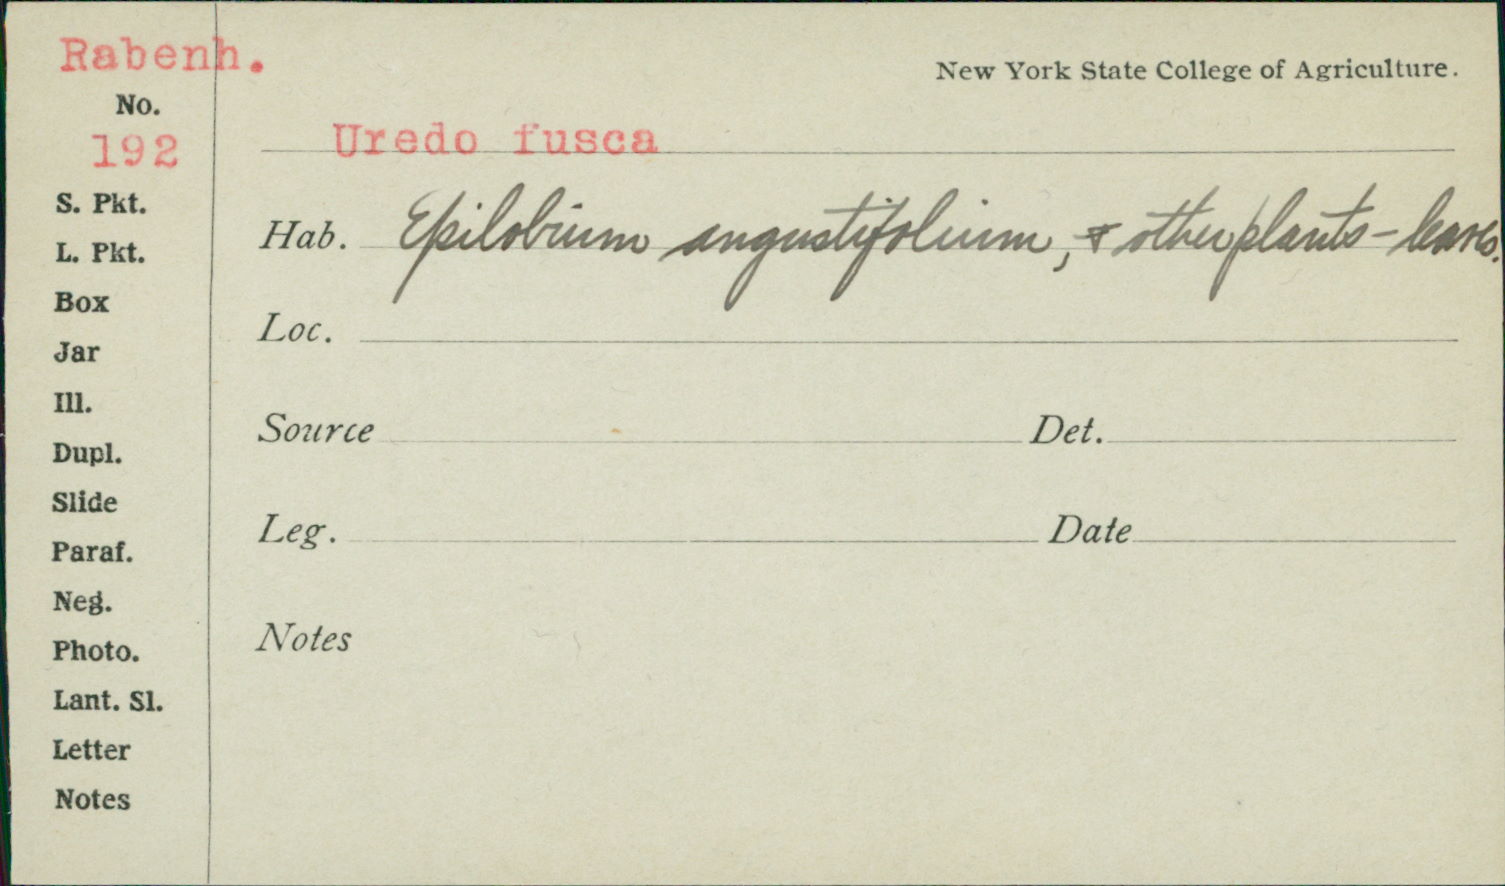 Rabenh.
New York State College of Agriculture.
No.
192
Uredo fusca
S. Pkt.
Hab. Epilobium angustifolium, & other plants - leaves.
L. Pkt.
Box
Loc.
Jar
Ill.
Source Det.
Dupl.
Slide
Leg. Date
Paraf.
Neg.
Notes
Photo.
Lant. Sl.
Letter
Notes